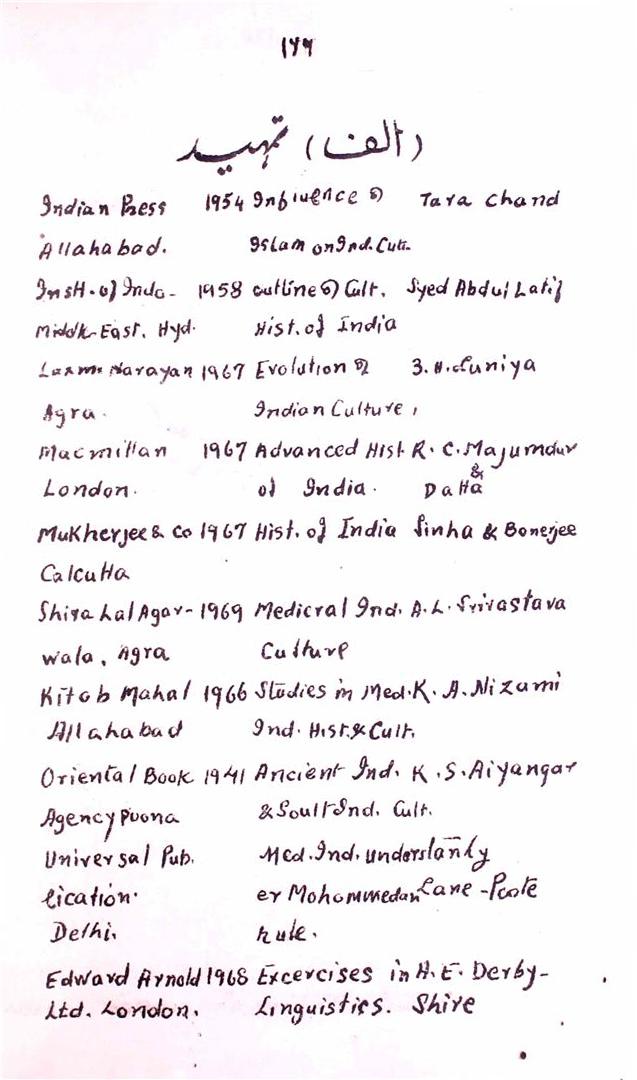 ۱۷۹
(الف) تمہید
Indian Press 1954 Influence of Tara Chand
Allahabad. Islam on Ind. Cult.
Instt. of Indo- 1958 outline of Cult. Syed Abdul Latif
Middle East, Hyd. Hist. of India
Laxmi Narayan 1967 Evolution of B.N. Luniya
Agra. Indian Culture,
Macmillan 1967 Advanced Hist. R. C. Majumdur
London. of India. & Datta
Mukherjee & Co 1967 Hist. of India Sinha & Bonerjee
Calcutta
Shiva Lal Agar- 1969 Medicral Ind. A. L. Srivastava
wala, Agra Culture
Kitab Mahal 1966 Studies in Med. K. A. Nizami
Allahabad Ind. Hist. & Cult.
Oriental Book 1941 Ancient Ind. K. S. Aiyangar
Agency Poona & Soult Ind. Cult.
Universal Pub. Med. Ind. under
lication. er Mohommedan Lane-Poole
Delhi. Rule.
Edward Arnold 1968 Excercises in H. E. Derby-
Ltd. London. Linguistics. Shire